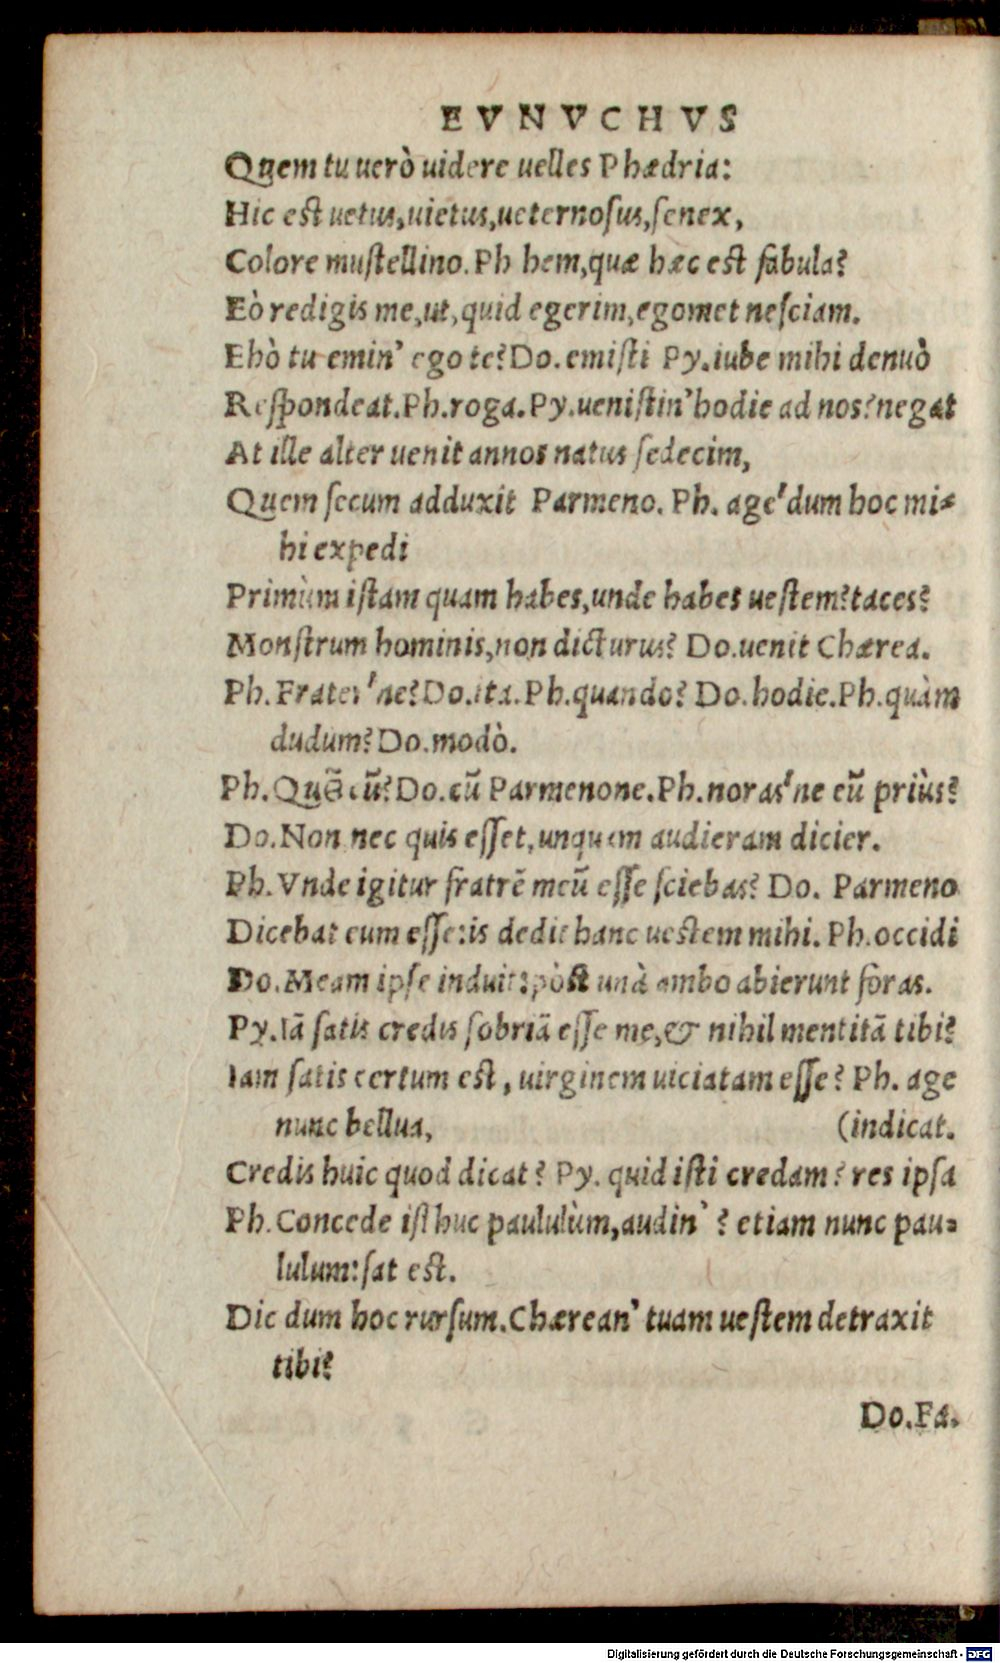 EVNVCHVS
Quem tu uerò uidere uelles Phædria:
Hic est uetus, uietus, ueternosus, senex,
Colore mustellino. Ph hem, quæ hæc est fabula?
Eò redigis me, ut, quid egerim, egomet nesciam.
Ehò tu emin' ego te? Do. emisti Py. iube mihi denuò
Respondeat. Ph. roga. Py. uenistin' hodie ad nos? negat
At ille alter uenit annos natus sedecim,
Quem secum adduxit Parmeno. Ph. age'dum hoc mi=
hi expedi
Primùm istam quam habes, unde habes uestem? taces?
Monstrum hominis, non dicturus? Do. uenit Chærea.
Ph. Frater'ne? Do. ita. Ph. quando? Do. hodie. Ph. quàm
dudum? Do. modò.
Ph. Quẽ cũ? Do. cũ Parmenone. Ph. noras'ne eũ priùs?
Do. Non nec quis esset, unquam audieram dicier.
Ph. Vnde igitur fratrẽ meũ esse sciebas? Do. Parmeno
Dicebat eum esse: is dedit hanc uestem mihi. Ph. occidi
Do. Meam ipse induit: pòst unà ambo abierunt foras.
Py. Iã satis credis sobriã esse me, & nihil mentitã tibi?
Iam satis certum est, uirginem uiciatam esse? Ph. age
nunc bellua, (indicat.
Credis huic quod dicat? Py. quid isti credam? res ipsa
Ph. Concede isthuc paululùm, audin'? etiam nunc pau=
lulum: sat est.
Dic dum hoc rursum. Chærean' tuam uestem detraxit
tibi?
Do. Fa.
Digitalisierung gefördert durch die Deutsche Forschungsgemeinschaft - DFG